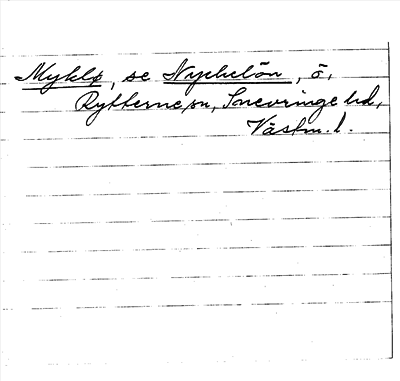 Myklø, se Nyckelön, ö,
Rytterne sn, Snevringe hd,
Västm. l.